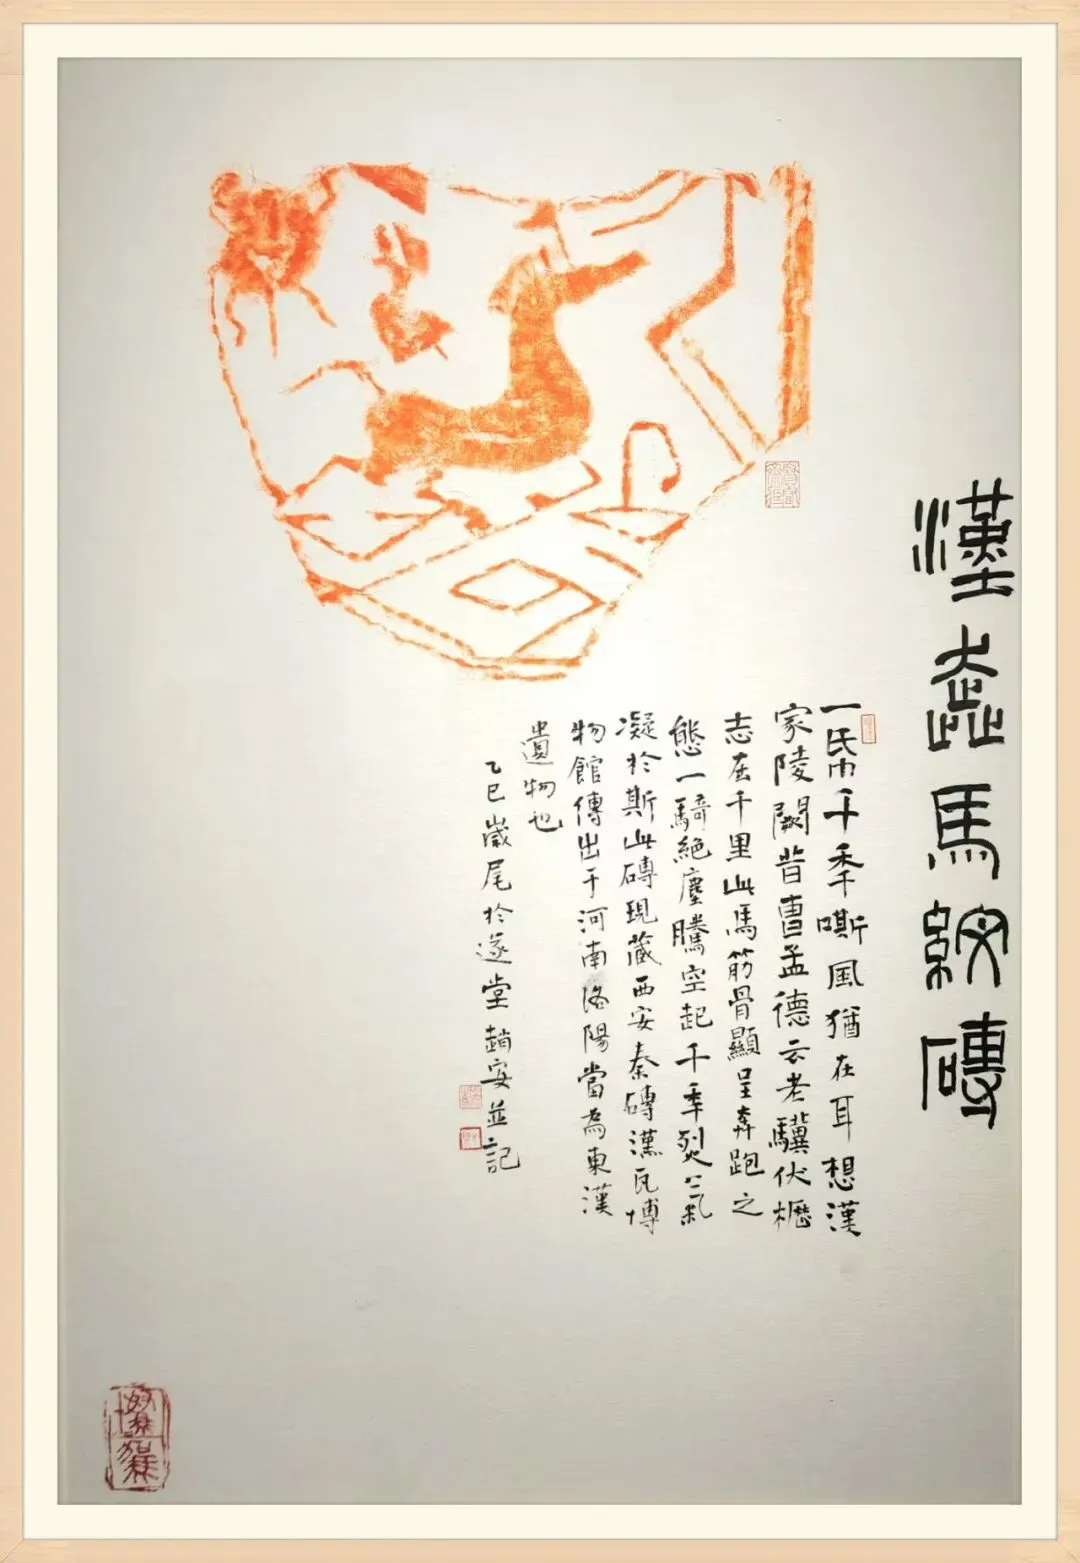 漢奔馬紋磚
一帋千秊嘶風猶在耳想漢
家陵闕昔曹孟德云老驥伏櫪
志在千里此馬筋骨顯呈奔跑之
態一騎絕塵騰空起千年烈〻氣
凝於斯此磚現藏西安秦磚漢瓦博
物館傳出于河南洛陽當為東漢
遺物也
乙巳歲尾於遂堂趙安並記